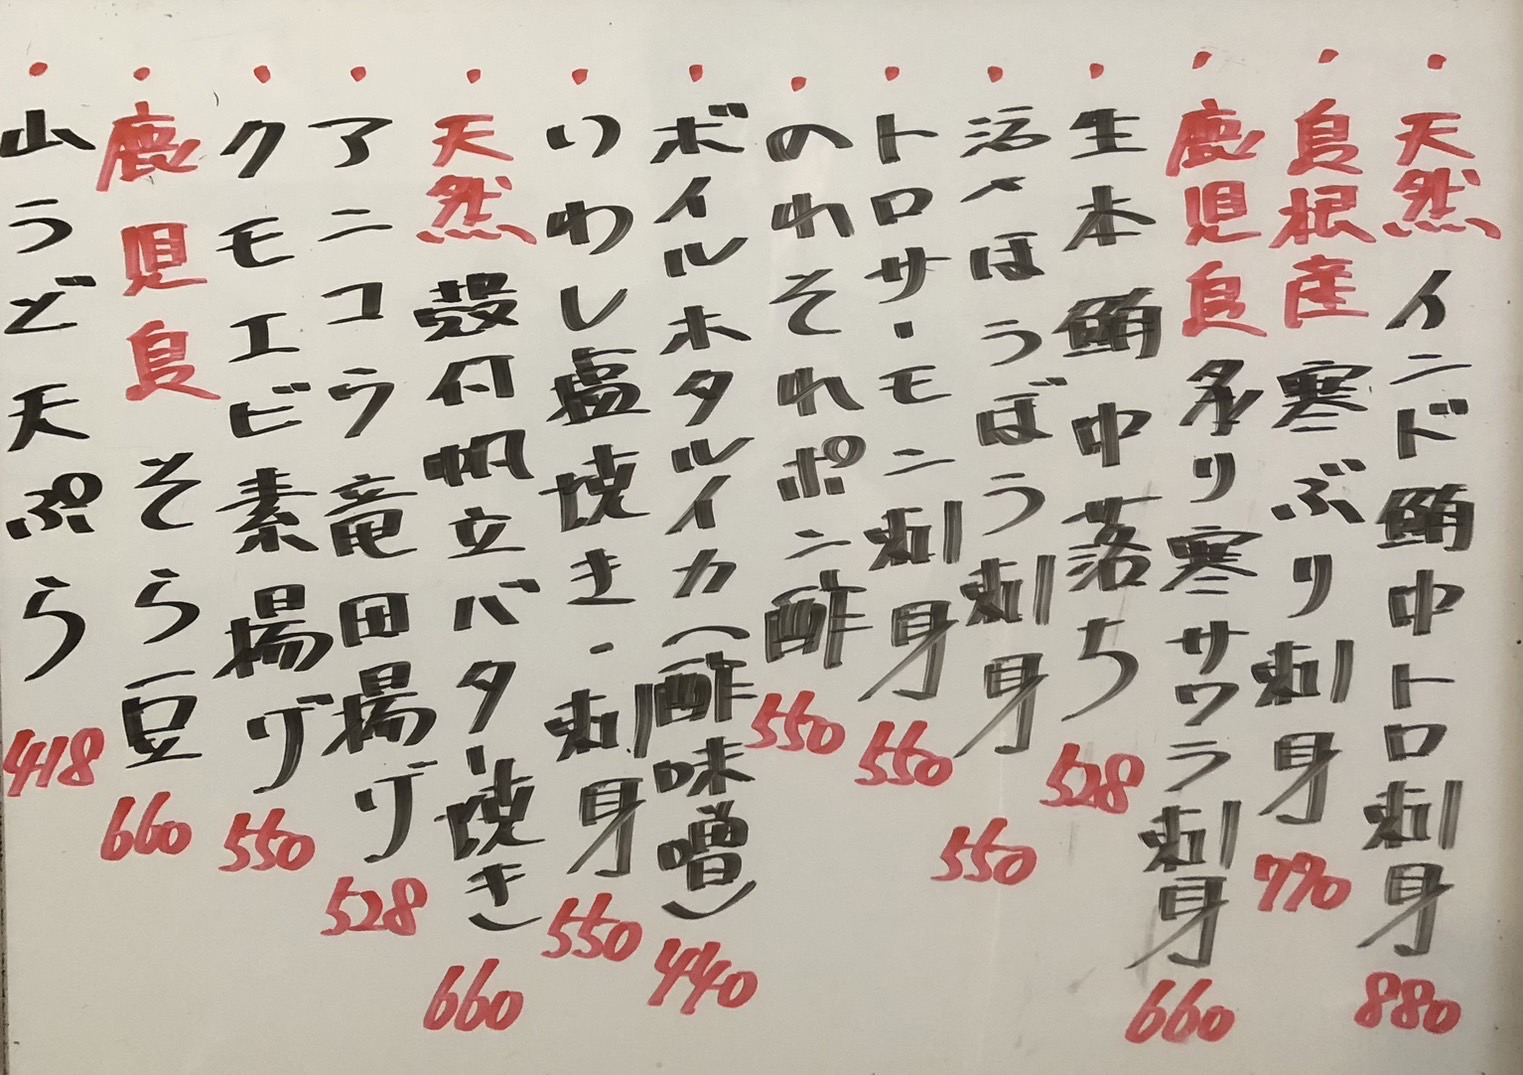 ・天然インド鮪中トロ刺身 880
・島根産寒ぶり刺身 770
・鹿児島炙り寒サワラ刺身 660
・生本鮪中落ち 528
・活〆ほうぼう刺身 550
・トロサーモン刺身 550
・のれそれポン酢 550
・ボイルホタルイカ(酢味噌) 440
・いわし塩焼き・刺身 550
・天然殻付帆立バター焼き 660
・アンコウ竜田揚げ 528
・クモエビ素揚げ 550
・鹿児島そら豆 660
・山うど天ぷら 418